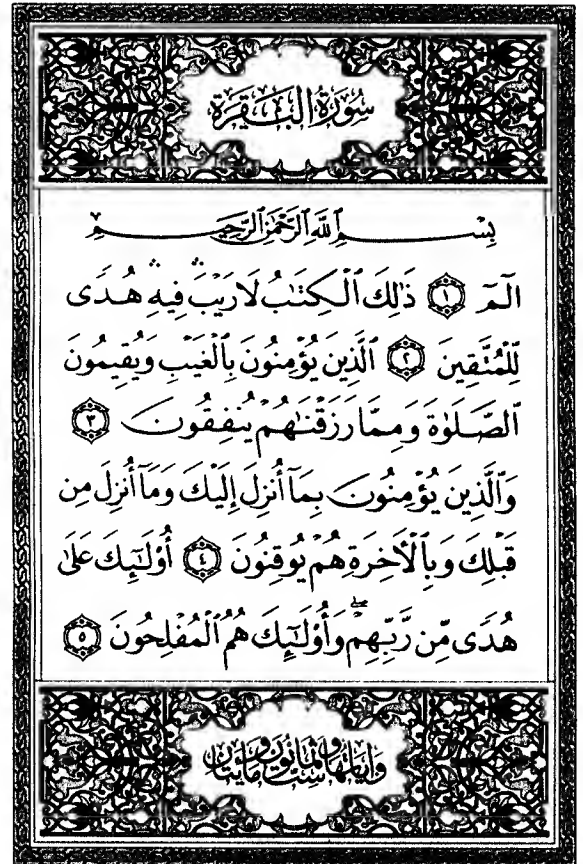 سُورَةُ الْبَقَرَةِ
بِسْمِ ٱللَّهِ ٱلرَّحْمَٰنِ ٱلرَّحِيمِ
الٓمٓ ۝١ ذَٰلِكَ ٱلْكِتَٰبُ لَا رَيْبَ ۛ فِيهِ ۛ هُدًى
لِّلْمُتَّقِينَ ۝٢ ٱلَّذِينَ يُؤْمِنُونَ بِٱلْغَيْبِ وَيُقِيمُونَ
ٱلصَّلَوٰةَ وَمِمَّا رَزَقْنَٰهُمْ يُنفِقُونَ ۝٣
وَٱلَّذِينَ يُؤْمِنُونَ بِمَآ أُنزِلَ إِلَيْكَ وَمَآ أُنزِلَ مِن
قَبْلِكَ وَبِٱلْأَخِرَةِ هُمْ يُوقِنُونَ ۝٤ أُو۟لَٰٓئِكَ عَلَىٰ
هُدًى مِّن رَّبِّهِمْ ۖ وَأُو۟لَٰٓئِكَ هُمُ ٱلْمُفْلِحُونَ ۝٥
وآياتها ست وثمانون ومائتان